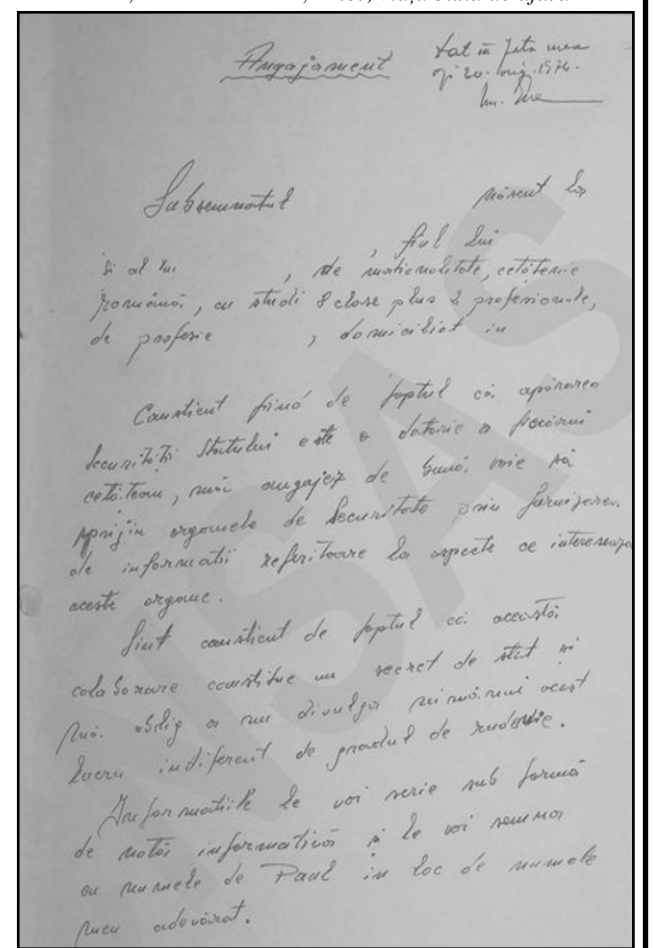 Angajament
Dat în fața mea
azi 20. aug. 1974.
Subsemnatul născut la
, fiul lui
și al lui , de naționalitate, cetățenie
română, cu studii 8 clase plus 2 profesionale,
de profesie , domiciliat în
Conștient fiind de faptul că apărarea
securității Statului este o datorie a fiecărui
cetățean, mă angajez de bună voie să
sprijin organele de Securitate prin furnizarea
de informații referitoare la aspecte ce interesează
aceste organe.
Sînt conștient de faptul că această
colaborare constitue un secret de stat și
mă oblig a nu divulga nimănui acest
lucru indiferent de gradul de rudenie.
Informațiile le voi scrie sub formă
de notă informativă și le voi semna
cu numele de Paul în loc de numele
meu adevărat.